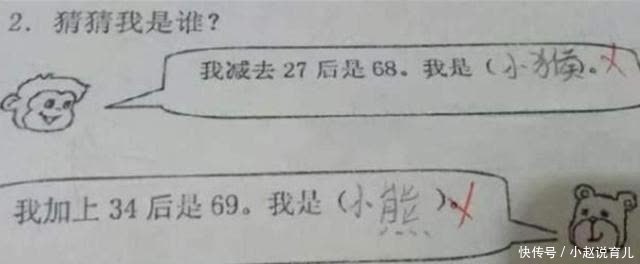 2. 猜猜我是谁?
我减去 27 后是 68。我是(小猴)。
我加上 34 后是 69。我是(小熊)。
快传号/小赵说育儿